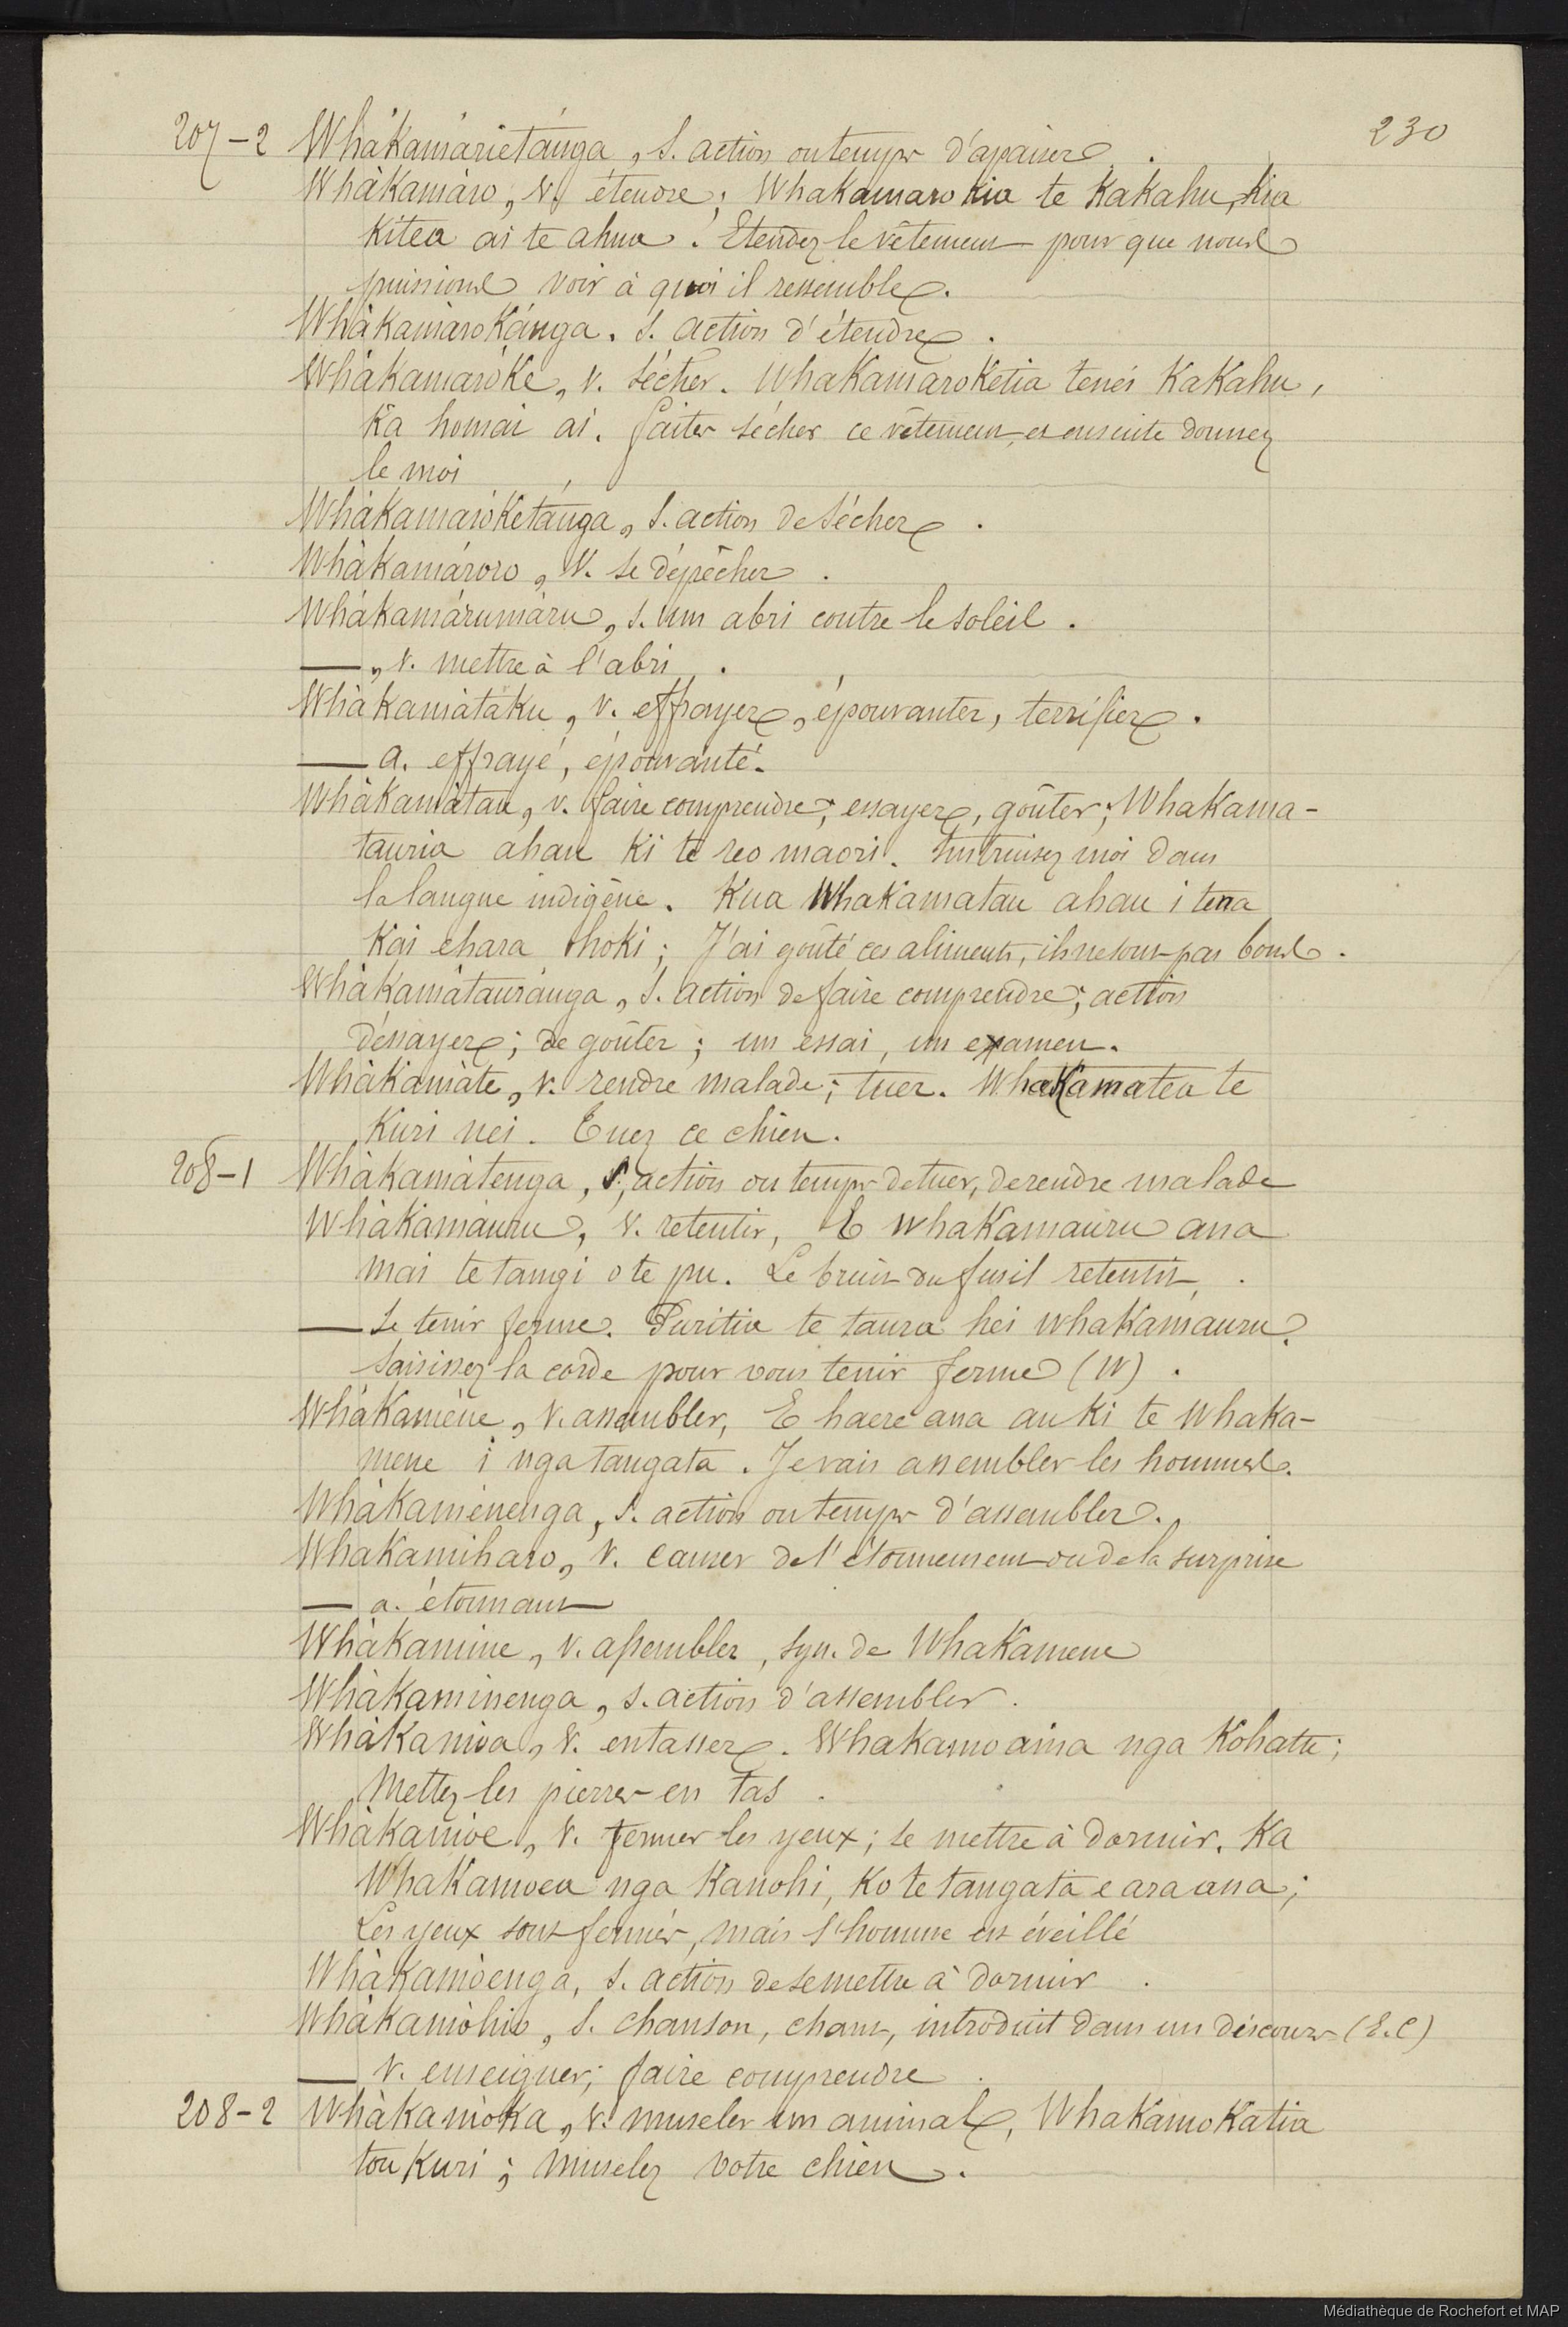 230
207-2 Whàkamàrietánga, s. action ou temps d'apaiser.
Whàkamàro, v. étendre; Whakamaro kia te kakahu, kia
kitea ai te ahua. Etendez le vêtement pour que nous
puissions voir à quoi il ressemble.
Whàkamàrokánga. s. action d'étendre.
Whàkamaròke, v. sécher. Whakamaroketia tenei kakahu,
ka homai ai. faites sécher ce vêtement, et ensuite donnez
le moi
Whàkamaròketánga, s. action de sécher.
Whàkamároro, v. se dépêcher.
Whàkamárumàru, s. um abri contre le soleil.
—, v. mettre à l'abri.
Whàkamàtaku, v. effrayer, épouvanter, terrifier.
— a. effrayé, épouvanté.
Whàkamàtau, v. faire comprendre; essayer, goûter; Whakama-
tauria ahau ki te reo maori. Instruisez moi dans
la langue indigène. Kua Whakamatau ahau i tena
kai ehara hoki; J'ai goûté ces aliments, ils ne sont pas bons.
Whàkamàtauránga, s. action de faire comprendre; action
d'essayer; de goûter; un essai, un examen.
Whàkamàte, v. rendre malade; tuer. Whakamatea te
Kuri nei. Tuez ce chien.
208-1 Whàkamàtenga, s, action ou temps de tuer, de rendre malade
Whàkamàuru, v. retentir, E whakamauru ana
mai te tangi o te pu. Le bruit du fusil retentit.
— se tenir ferme. Puritia te taura hei whakamauru.
Saisissez la corde pour vous tenir ferme (W).
Whàkamène, v. assembler, E haere ana au ki te whaka-
mene i nga tangata. Je vais assembler les hommes.
Whàkamènenga, s. action ou temps d'assembler.
Whakamiharo, v. Causer de l'étonnement ou de la surprise
— a. étonnant
Whàkamine, v. assembler, syn. de Whakamene
Whàkaminenga, s. action d'assembler.
Whàkamòa, v. entasser. Whakamoaina nga Kohatu;
Mettez les pierres en tas.
Whàkamòe, v. fermer les yeux; se mettre à dormir. Ka
Whakamoea nga Kanohi, Ko te tangata e ara ana;
Les yeux sont fermés, mais l'homme est éveillé
Whàkamòenga, s. action de se mettre à dormir.
Whàkamòhio, s. chanson, chant, introduit dans un discours (E.C)
— v. enseigner; faire comprendre.
208-2 Whàkamòka, v. museler un animal, Whakamokatia
tou Kuri; muselez votre chien.
Médiathèque de Rochefort et MAP